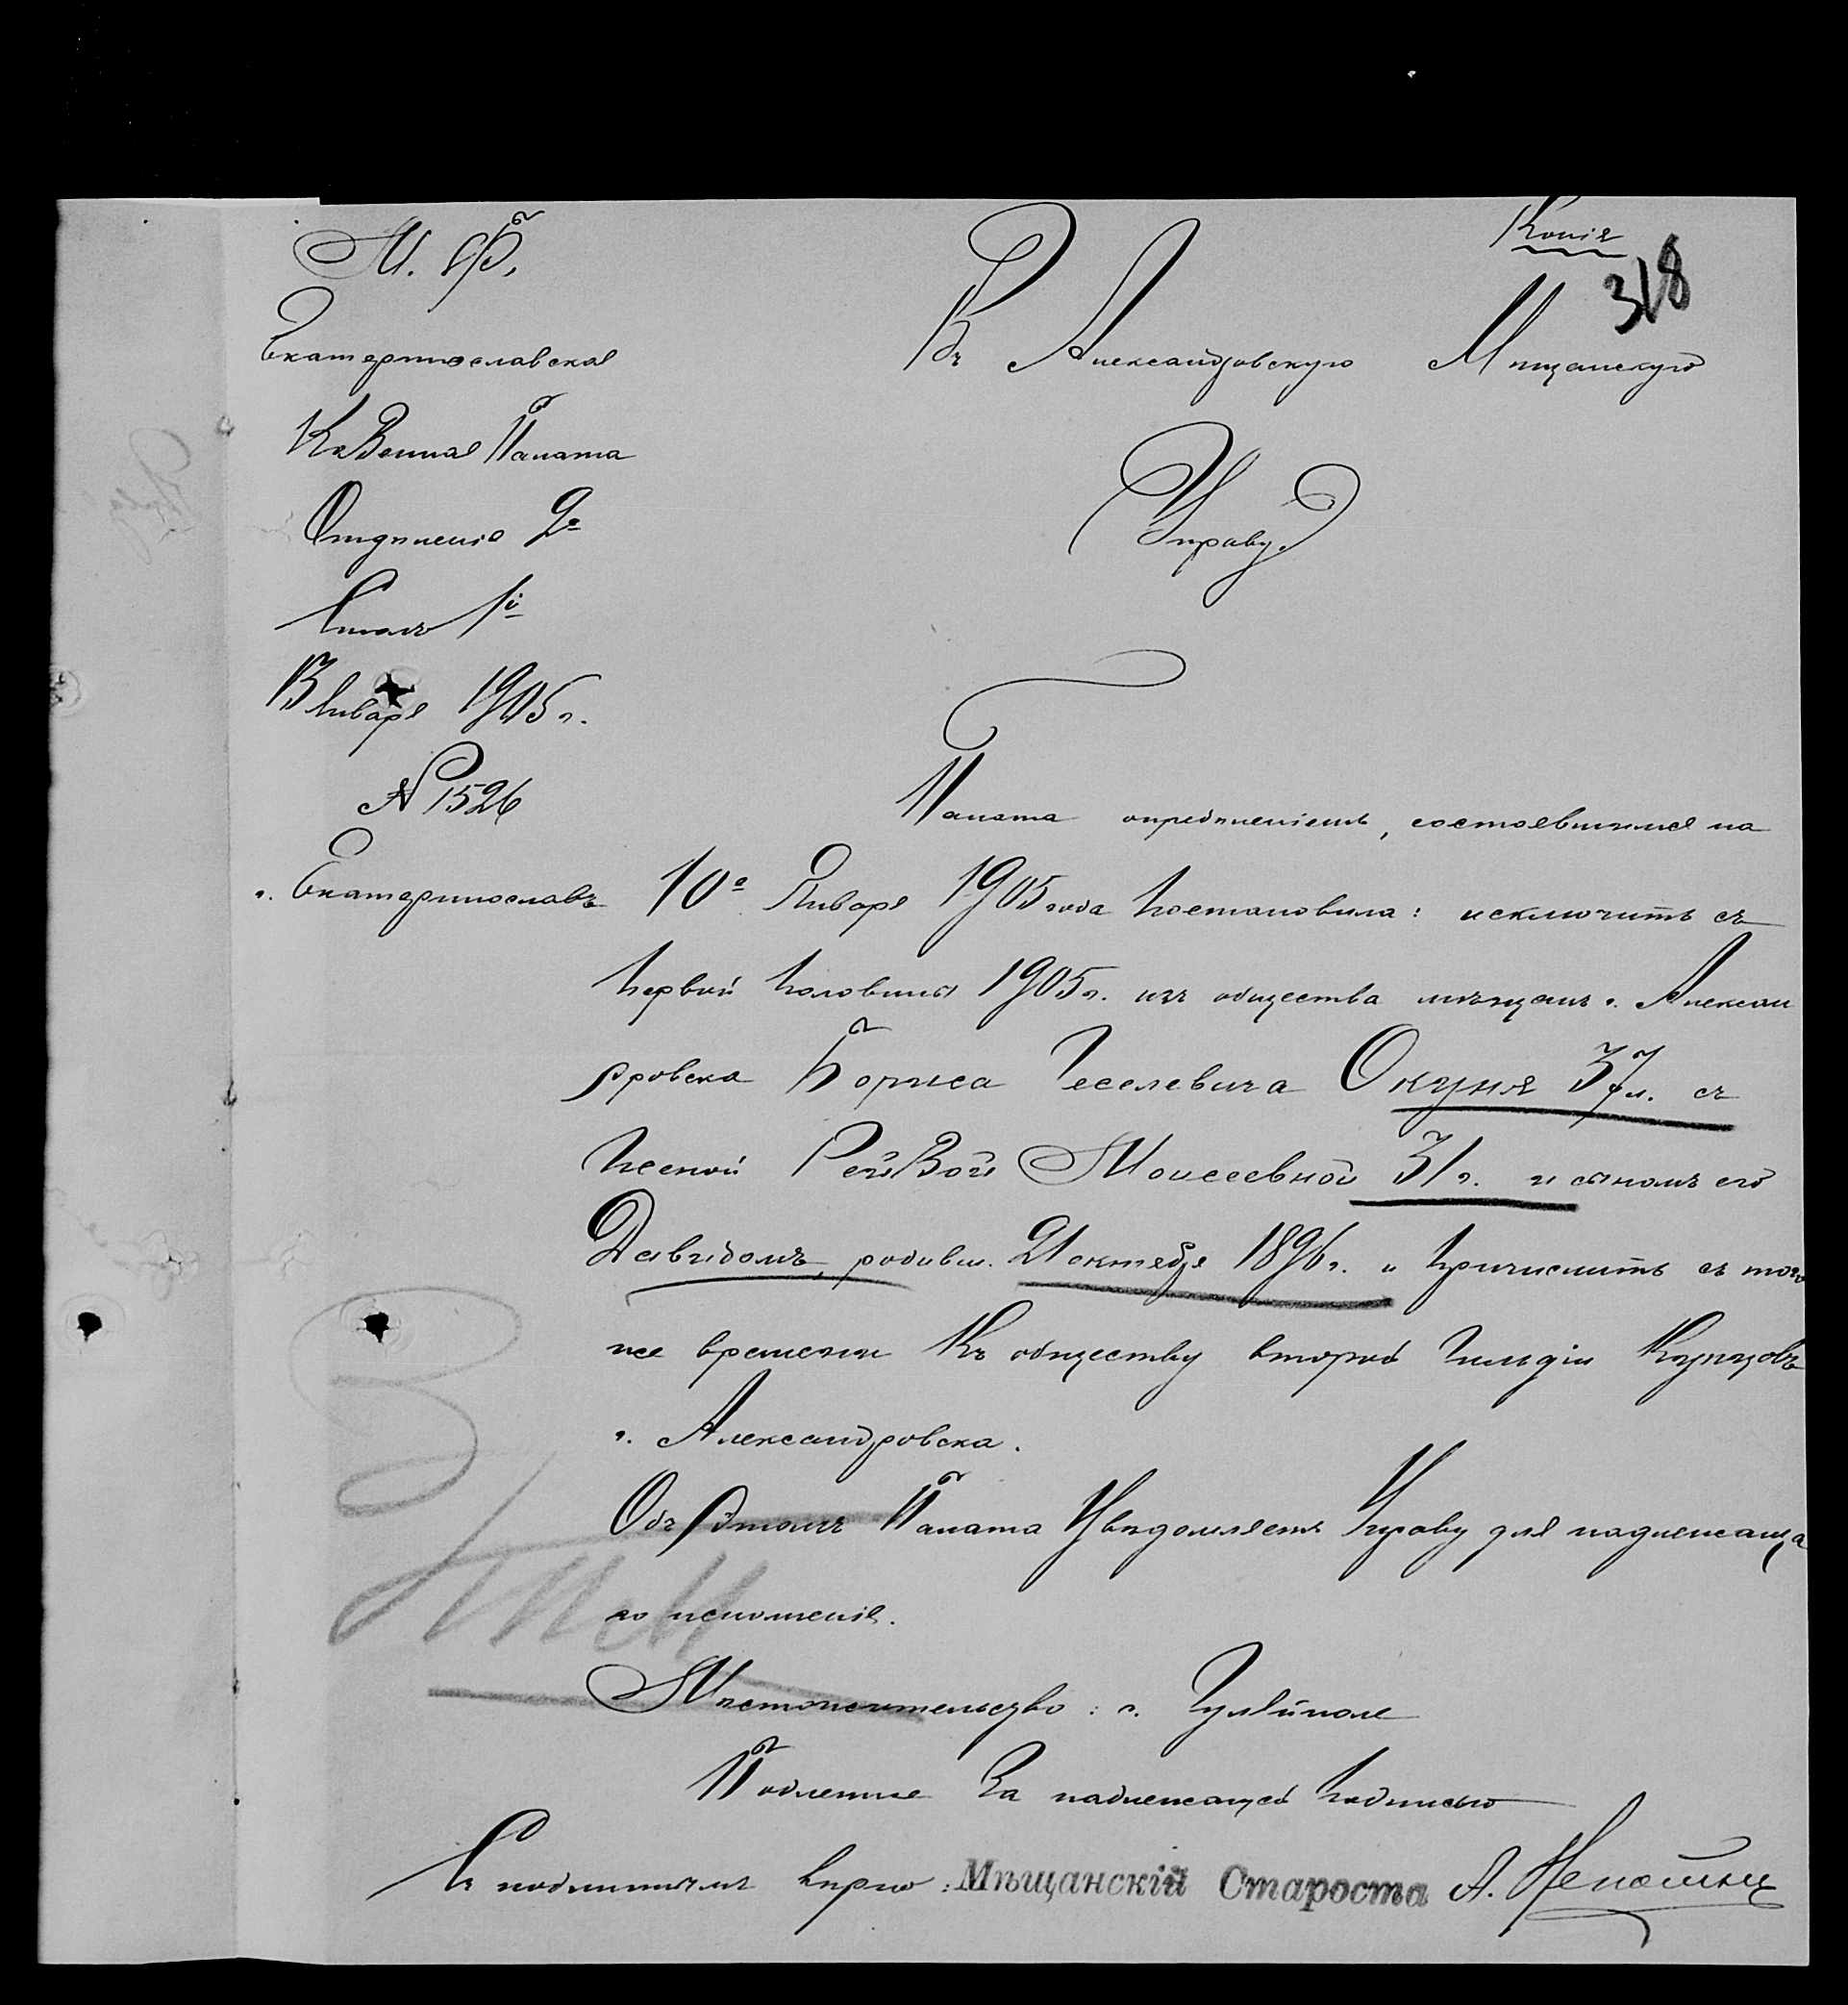 Копія
318
М. Ф.
Екатеринославская
Казенная Палата
Отдѣленіе 2е
Столъ 1й
13 Января 1905 г.
№ 1526
г. Екатеринославъ
Въ Александровскую Мѣщанскую
Управу.
Палата опредѣленіемъ, состоявшимся на
10е Января 1905 года постановила: исключить съ
первой половины 1905 г. изъ общества мѣщанъ г. Алексан
дровска Бориса Геселевича Окуня 37 л. съ
женой Рейзой Моисеевной 31 г. и сыномъ его
Давидомъ, родивш. 21 октября 1896 г. и причислить съ того
же времени къ обществу второй гильдіи купцовъ
г. Александровска.
Объ этомъ Палата увѣдомляетъ Управу для надлежаща
го исполненія.
Мѣстожительство: с. Гуляйполе
Подлинное за надлежащей подписью
Съ подлиннымъ вѣрно: Мѣщанскій Староста А.